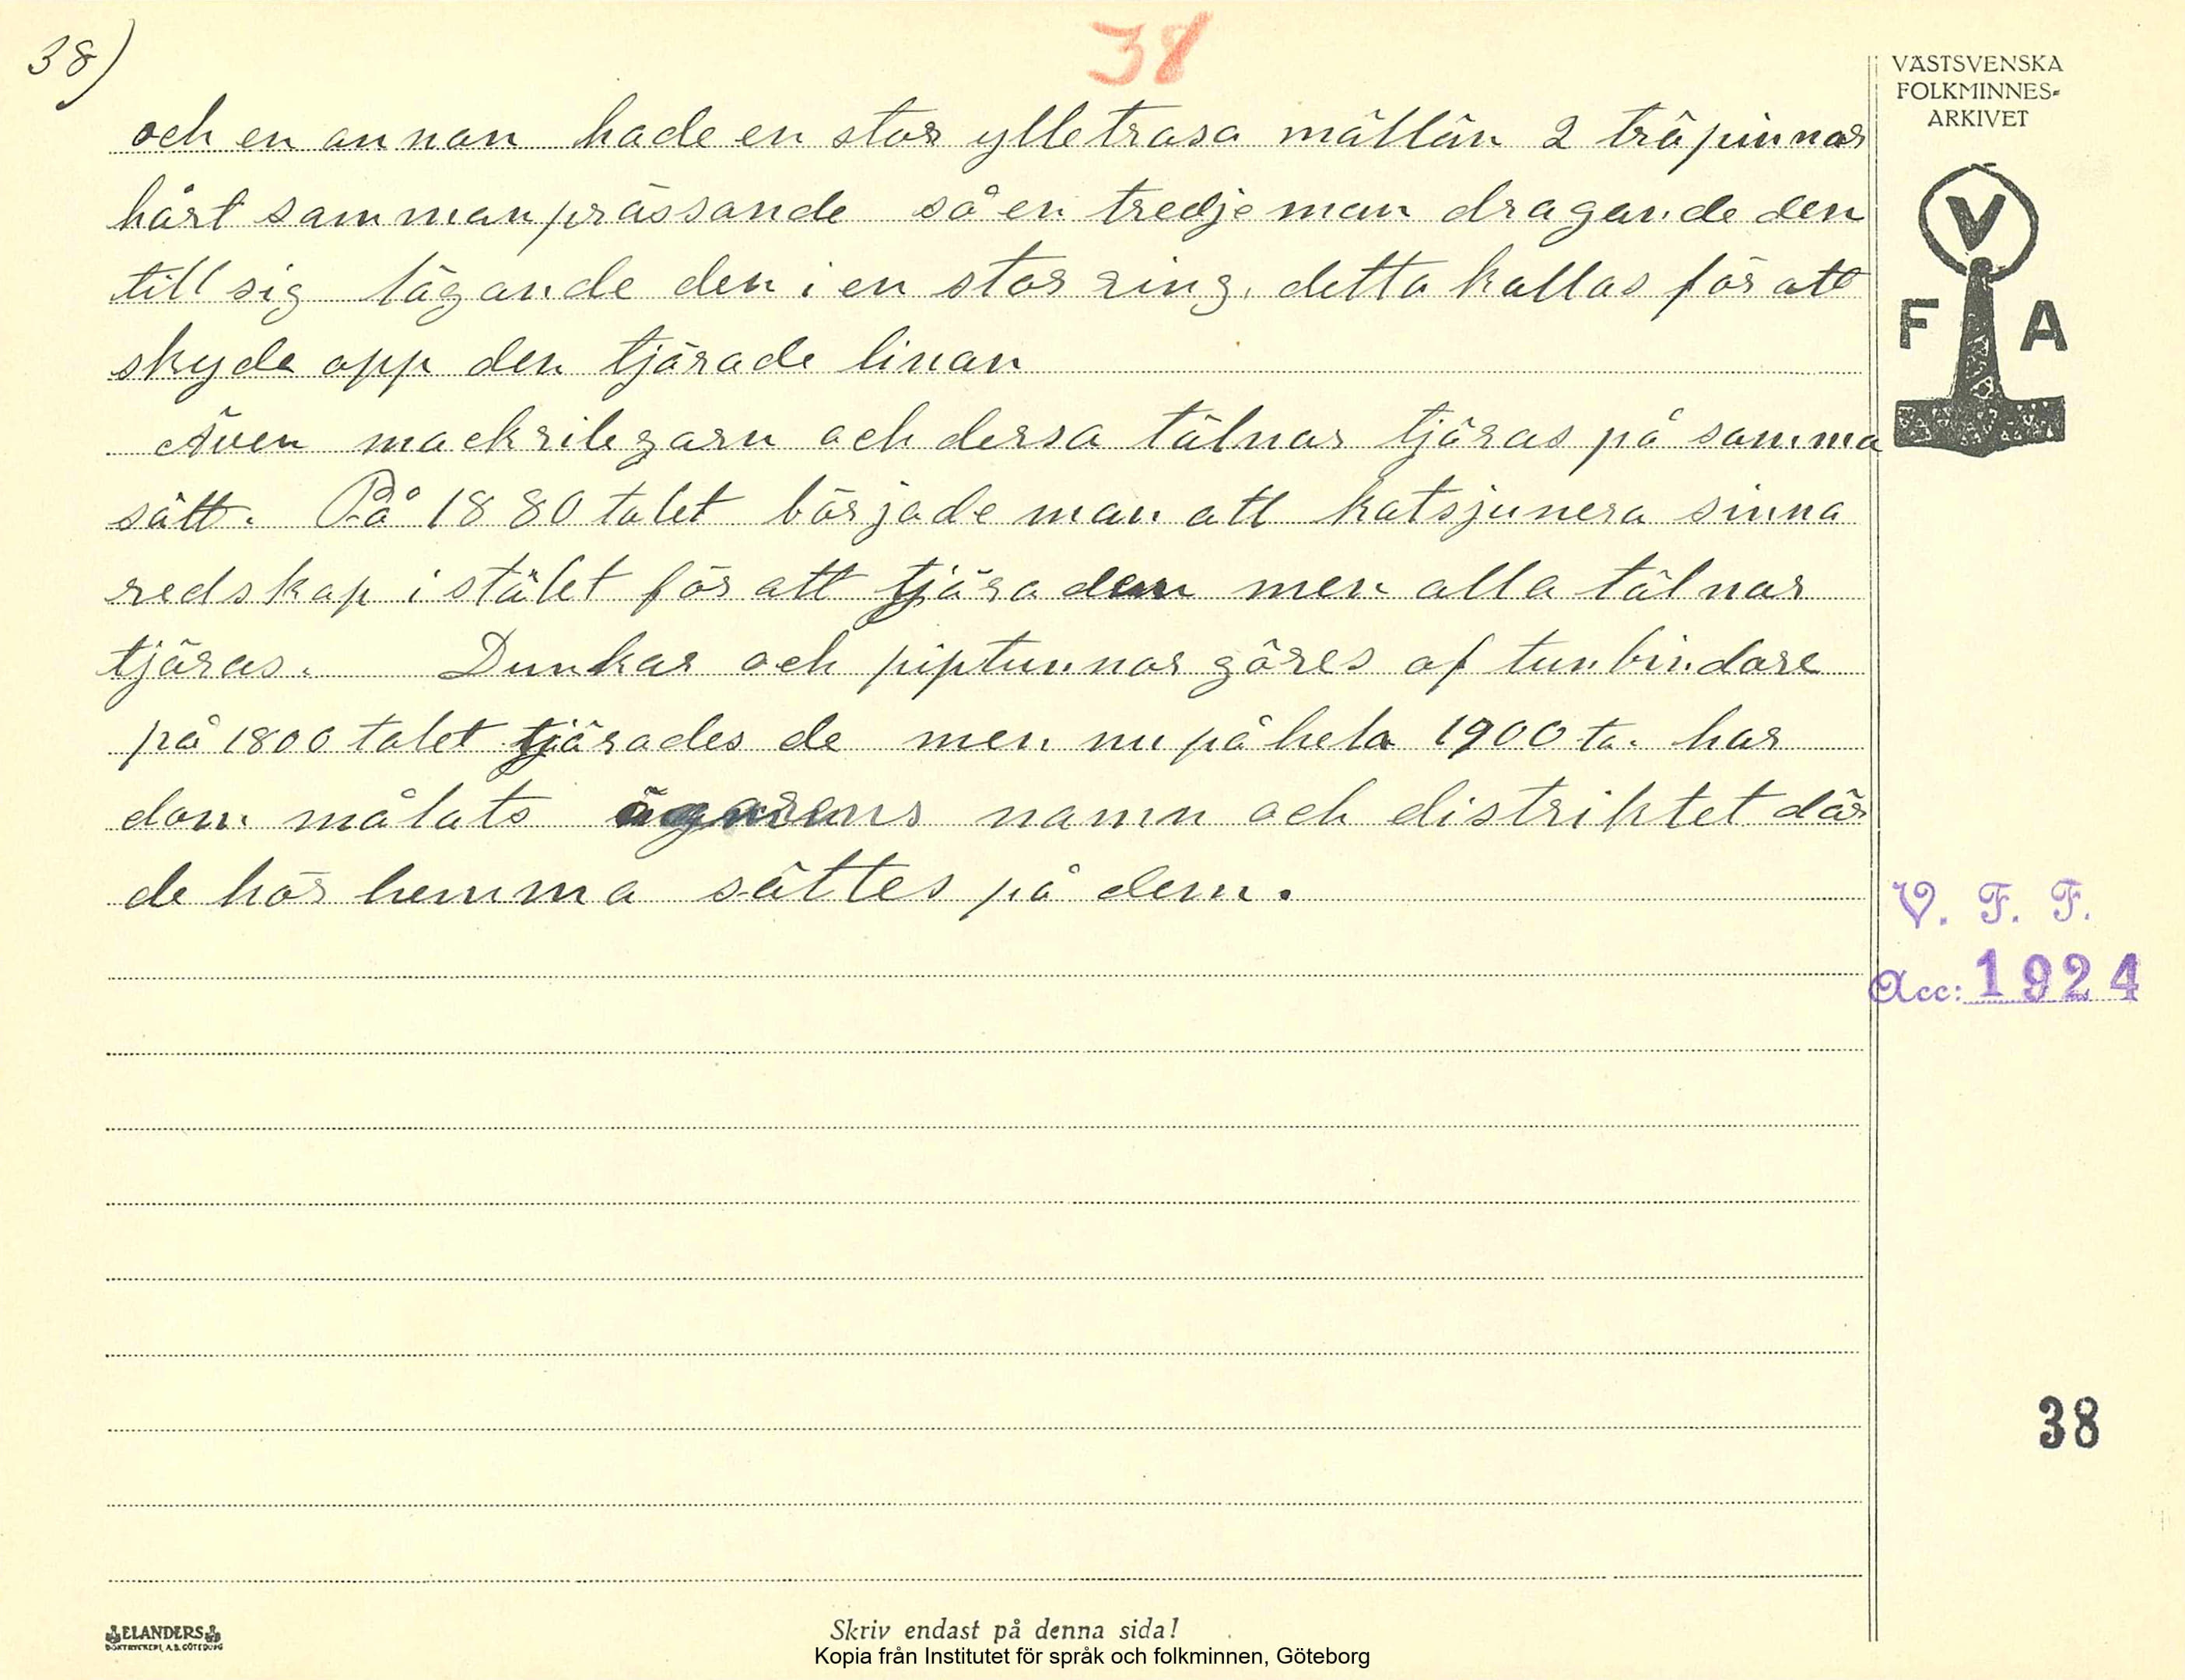 38)
38
VÄSTSVENSKA
FOLKMINNES-
ARKIVET
och en annan hade en stor ylletrasa mällän 2 träpinnar
hårt sammanprässande så en tredje man dragande den
till sig lägande den i en stor ring. detta kallas för att
skyda opp den tjärade linan
Även mackrilegarn och dersa tälnar tjäras på samma
sätt. På 1880 talet började man att katsjunera sinna
redskap i stället för att tjära dem men alla tälnar
tjäras. Dunkar och piptunnor göres af tunbindare
på 1800 talet tjärades de men nu på hela 1900 ta. har
dom målats ägarens namn och distriktet där
de hör hemma sättes på dem.
V
F A
V. F. F.
Acc: 1924
38
ELANDERS
BOKTRYCKERI, A.B. GÖTEBORG
Skriv endast på denna sida!
Kopia från Institutet för språk och folkminnen, Göteborg